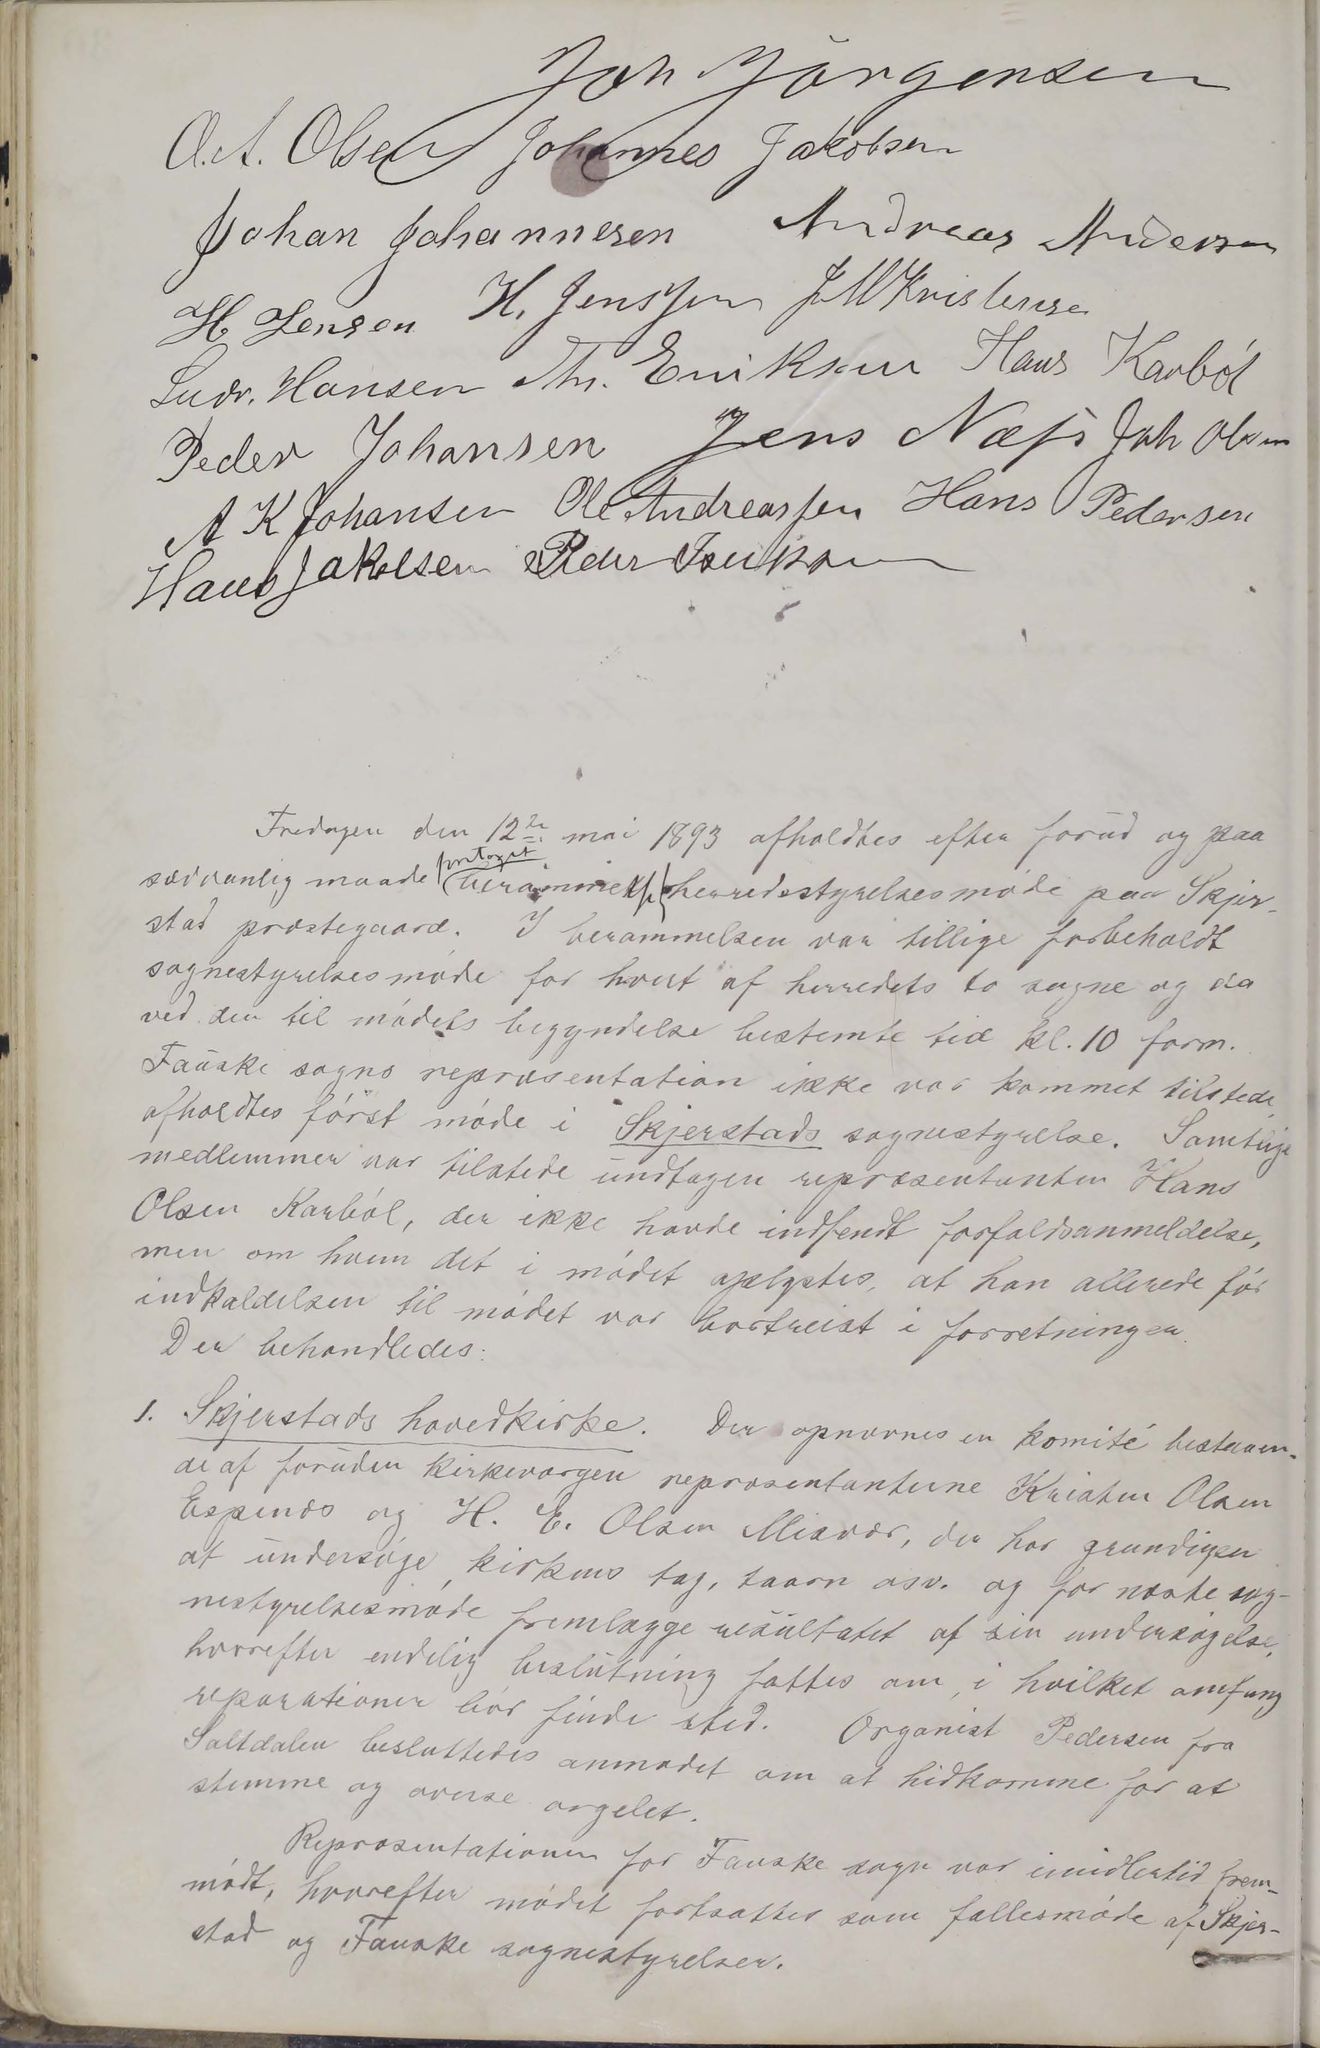 Joh Jörgensen
O. A. Olsen Johannes Jakobsen
Johan Johannesen Andreas Andersen
H Jensen H. Jenssen J M Kristensen
Ludv. Hansen Th. Eriksen Hans Karból
Peder Johansen Jens Næss Joh Olsen
A K Johansen Ole Andreassen Hans Pedersen
Hans Jakobsen Peder Isaksen
Fredagen den 12te mai 1893 afholdtes efter forud og paa
sædvanlig maade foretaget berammelse herredsstyrelsesmøde paa Skjer-
stad præstegaard. I berammelsen var tillige forbeholdt
sognestyrelsesmøde for hvert af herredets to sogne og da
ved den til mødets begyndelse bestemte tid kl. 10 form.
Fauske sogns repræsentation ikke var kommet tilstede,
afholdtes først møde i Skjerstads sognestyrelse. Samtlige
medlemmer var tilstede undtagen repræsentanten Hans
Olsen Karból, der ikke havde indsendt forfaldsanmeldelse,
men om hvem det i mødet oplystes, at han allerede før
indkaldelsen til mødet var bortreist i forretninger.
Der behandledes:
1. Skjerstads hovedkirke. Der opnævnes en komité bestaaen-
de af foruden kirkeværgen repræsentanterne Kristen Olsen
Espenæs og H. E. Olsen Misvær, der har grundigen
at undersøge kirkens tag, taarn osv. og for næste sog-
nestyrelsesmøde fremlægge resultatet af sin undersøgelse,
hvorefter endelig beslutning fattes om, i hvilket omfang
reparationer bør finde sted. Organist Pedersen fra
Saltdalen besluttedes anmodet om at hidkomme for at
stemme og overse orgelet.
Repræsentationen for Fauske sogn var imidlertid frem-
mødt, hvorefter mødet fortsattes som fællesmøde af Skjer-
stad og Fauske sognestyrelser.